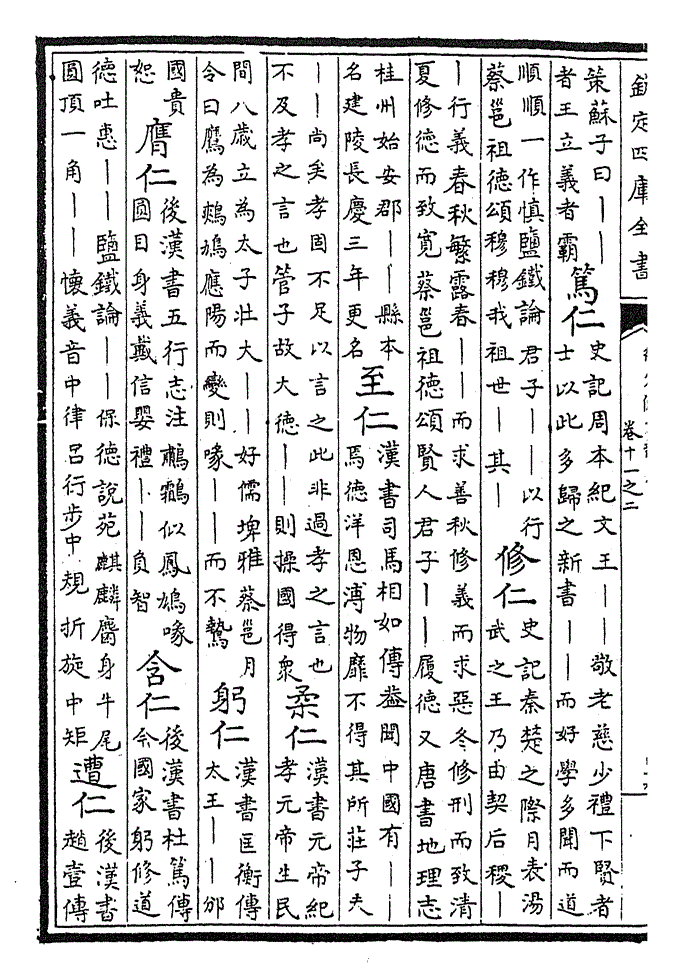 欽定四庫全書
卷十一之二
策蘇子曰｜｜
者王立義者霸
篤仁
史記周本紀文王｜｜敬老慈少禮下賢者
士以此多歸之新書｜｜而好學多聞而道
順順一作慎鹽鐵論君子｜｜以行
蔡邕祖德頌穆穆我祖世｜其｜
修仁
史記秦楚之際月表湯
武之王乃由契后稷｜
｜行義春秋繁露春｜｜而求善秋修義而求惡冬修刑而致清
夏修德而致寛蔡邕祖德頌賢人君子｜｜履德又唐書地理志
桂州始安郡｜｜縣本
名建陵長慶三年更名
至仁
漢書司馬相如傳葢聞中國有｜｜
焉德洋恩溥物靡不得其所莊子夫
｜｜尚矣孝固不足以言之此非過孝之言也
不及孝之言也管子故大德｜｜則操國得衆
柔仁
漢書元帝紀
孝元帝生民
間八歳立為太子壯大｜｜好儒埤雅蔡邕月
令曰鷹為鷞鳩應陽而變則喙｜｜而不鷙
躬仁
漢書匡衡傳
太王｜｜邠
國貴
恕
膺仁
後漢書五行志注鷫鸘似鳳鳩喙
圓目身義戴信嬰禮｜｜負智
含仁
後漢書杜篤傳
今國家躬修道
德吐惠｜｜鹽鐵論｜｜保德說苑麒麟麕身牛尾
圓頂一角｜｜懷義音中律呂行步中規折旋中矩
遭仁
後漢書
趙壹傳